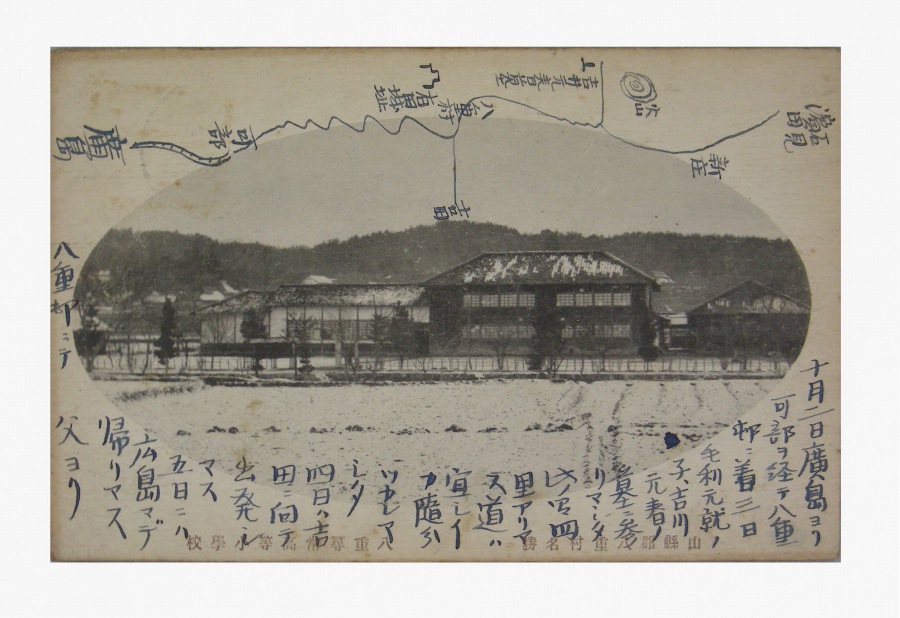 廣島
可部
古戦場址
八重村
吉川元春墓
火山
石見
新庄
吉田
十月二日廣島ヨリ
可部ヲ経テ八重
邨ニ着三日
毛利元就ノ
子、吉川
元春ノ
墓ニ参
リマシタ
此ノ間四
里アリマ
ス道ハ
宜シイ
カ随分
ツカレマ
シタ
四日ハ吉
田ニ向テ
出発シ
マス
五日ニハ
広島マデ
帰リマス
父ヨリ
八重邨ニテ
山縣郡八重村名勝
八重尋常高等小學校